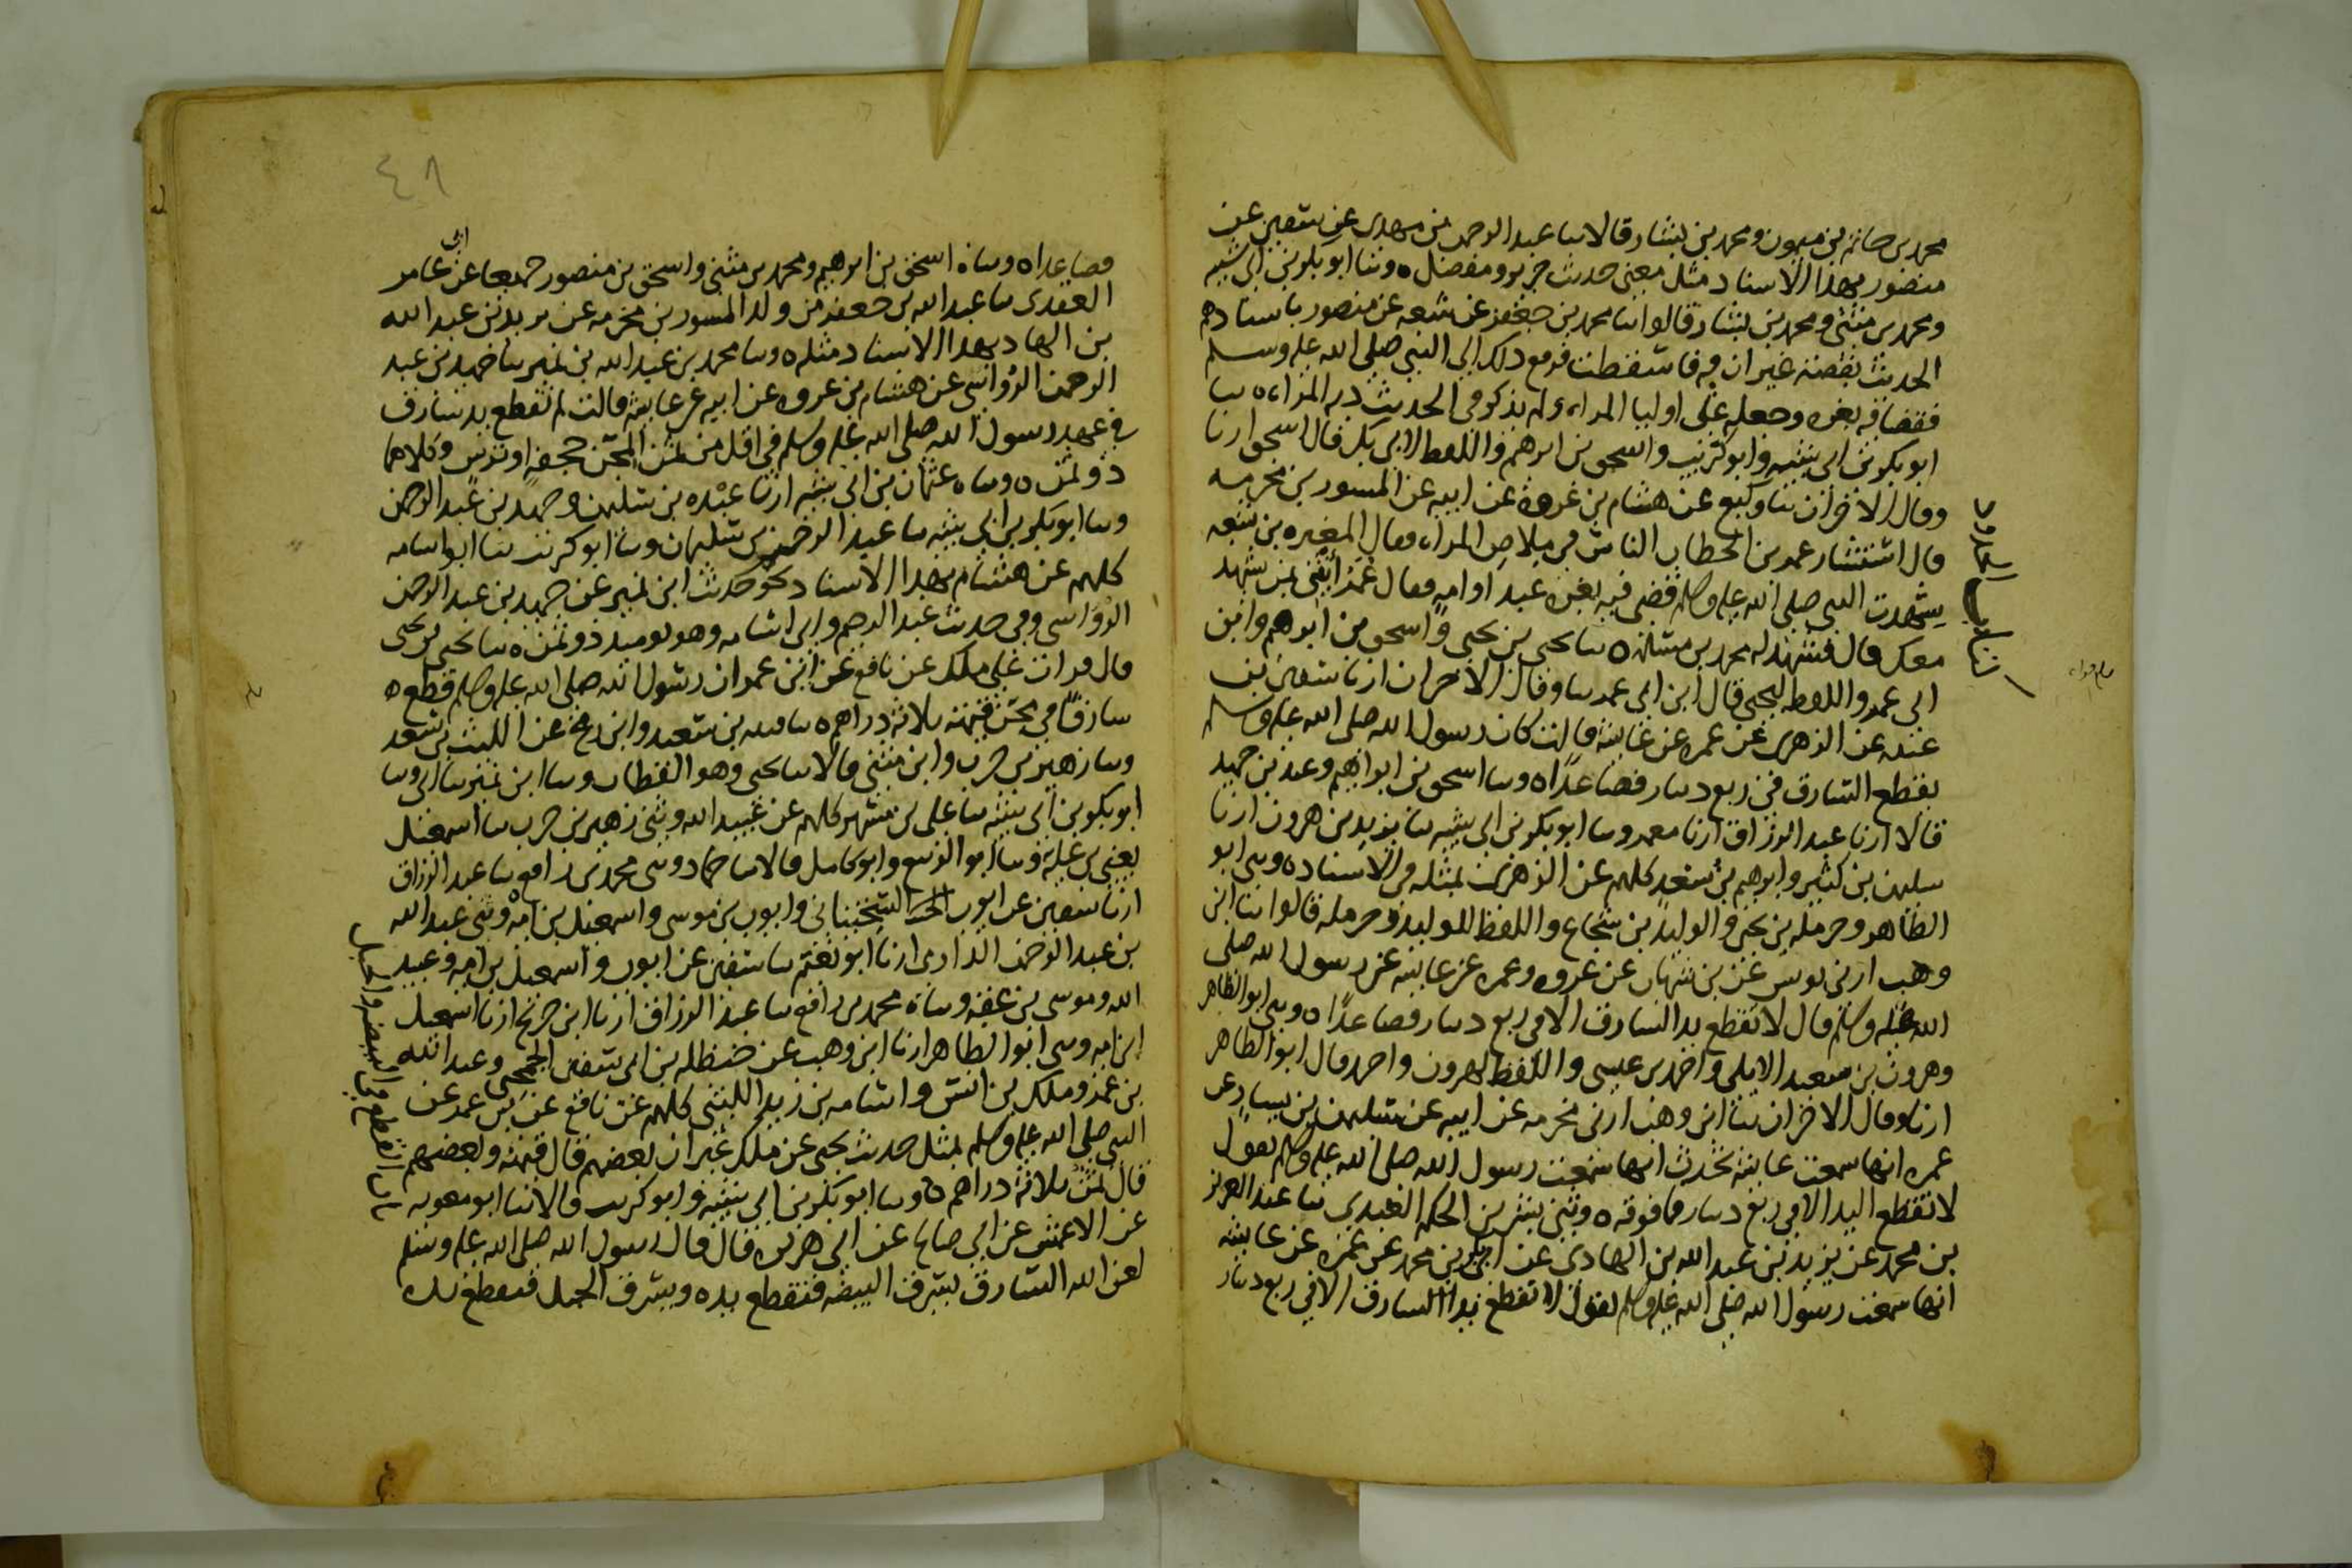 محمد بن حاتم بن ميمون ومحمد بن بشار قالا ثنا عبد الرحمن بن مهدي عن سفين عن
منصور بهذا الاسناد مثل معنى حديث جرير ومفضل ٥ وثنا ابو بكر بن ابي شيبه
ومحمد بن مثنى ومحمد بن بشار قالوا ثنا محمد بن جعفر عن شعبه عن منصور باسنادهم
الحديث بقصته غير ان فيه فاسقطت فرفع ذلك الى النبي صلى الله عليه وسلم
فقضا فيه بغره وجعله على اوليا المراه ولم يذكر في الحديث ديه المراه ٥ ثنا
ابو بكر بن ابي شيبه وابو كريب واسحق بن ابرهيم واللفظ لابي بكر قال اسحق ارنا
وقال الاخران ثنا وكيع عن هشام بن عروة عن ابيه عن المسور بن مخرمه
قال استشار عمر بن الخطاب الناس في ملاص المراه فقال المغيره بن شعبه
شهدت النبي صلى الله عليه وسلم قضى فيه بغره عبد او امه فقال عمر ائتني بمن يشهد
معك قال فشهد له محمد بن مسلمه ٥ ثنا يحيى بن يحيى واسحق بن ابرهيم وابن
ابي عمر واللفظ ليحيى قال ابن ابي عمر ثنا وقال الاخران ارنا سفين بن
عيينه عن الزهري عن عمره عن عايشه قالت كان رسول الله صلى الله عليه وسلم
يقطع السارق في ربع دينار فصاعدًا ٥ وثنا اسحق بن ابراهيم وعبد بن حميد
قالا ارنا عبد الرزاق ارنا معمر وثنا ابو بكر بن ابي شيبه ثنا يزيد بن هرون ارنا
سليمن بن كثير وابرهيم بن سعد كلهم عن الزهري بمثله في الاسناد ٥ وثني ابو
الطاهر وحرمله بن يحيى والوليد بن شجاع واللفظ للوليد وحرمله قالوا ثنا ابن
وهب ارني يونس عن بن شهاب عن عروه وعمره عن عايشه عن رسول الله صلى
الله عليه وسلم قال لا تقطع يد السارق الا في ربع دينار فصاعدًا ٥ وثني ابو الطاهر
وهرون بن سعيد الايلي واحمد بن عيسى واللفظ لهرون واحمد قال ابو الطاهر
ارنا وقال الاخران ثنا ابن وهب ارني مخرمه عن ابيه عن سليمن بن يسار عن
عمره انها سمعت عايشه تحدث انها سمعت رسول الله صلى الله عليه وسلم يقول
لا تقطع اليد الا في ربع دينار فما فوقه ٥ وثني بشر بن الحكم العبدي ثنا عبد العزيز
بن محمد عن يزيد بن عبد الله بن الهادي عن ابي بكر بن محمد عن عمره عن عايشه
انها سمعت رسول الله صلى الله عليه وسلم يقول لا تقطع يد السارق الا في ربع دينار
٤٨
فصاعدا ٥ وثناه اسحق بن ابرهيم ومحمد بن مثنى واسحق بن منصور جميعا عن ابي عامر
العقدي ثنا عبد الله بن جعفر من ولد المسور بن مخرمه عن يزيد بن عبد الله
بن الهاد بهذا الاسناد مثله ٥ وثنا محمد بن عبد الله بن نمير ثنا حميد بن عبد
الرحمن الرؤاسي عن هشام بن عروه عن ابيه عن عايشه قالت لم تقطع يد سارق
في عهد رسول الله صلى الله عليه وسلم في اقل من ثمن المجن حجفه او ترس وكلاهما
ذو ثمن ٥ وثناه عثمان بن ابي شيبه ارنا عبده بن سليمن وحميد بن عبد الرحمن
وثنا ابو بكر بن ابي شيبه ثنا عبد الرحيم بن سليمان وثنا ابو كريب ثنا ابو اسامه
كلهم عن هشام بهذا الاسناد نحو حديث ابن نمير عن حميد بن عبد الرحمن
الرؤاسي وفي حديث عبد الرحيم وابي اسامه وهو يوميذ ذو ثمن ٥ ثنا يحيى بن يحيى
قال قرات على ملك عن نافع عن ابن عمر ان رسول الله صلى الله عليه وسلم قطع
سارقًا في مجن قيمته ثلاثه دراهم ٥ ثنا قتيبه بن سعيد وابن رمح عن الليث بن سعد
وثنا زهير بن حرب وابن مثنى قالا ثنا يحيى وهو القطان وثنا ابن نمير ثنا ابي وثنا
ابو بكر بن ابي شيبه ثنا علي بن مسهر كلهم عن عبيد الله وثني زهير بن حرب ثنا اسمعيل
يعني بن عليه وثنا ابو الربيع وابو كامل قالا ثنا حماد وثني محمد بن رافع ثنا عبد الرزاق
ارنا سفين عن ايوب السختياني وايوب بن موسى واسمعيل بن اميه وثني عبد الله
بن عبد الرحمن الدارمي ارنا ابو نعيم ثنا سفين عن ايوب واسمعيل بن اميه وعبيد
الله وموسى بن عقبه وثناه محمد بن رافع ثنا عبد الرزاق ارنا ابن جريج ارنا اسمعيل
ابن اميه وثني ابو الطاهر ارنا ابن وهب عن حنظله بن ابي سفين الجمحي وعبد الله
بن عمر وملك بن انس واسامه بن زيد الليثي كلهم عن نافع عن بن عمر عن
النبي صلى الله عليه وسلم بمثل حديث يحيى عن ملك غير ان بعضهم قال قيمته وبعضهم
قال ثمنه ثلاثه دراهم ٥ وثنا ابو بكر بن ابي شيبه وابو كريب قالا ثنا ابو معويه
عن الاعمش عن ابي صالح عن ابي هريره قال قال رسول الله صلى الله عليه وسلم
لعن الله السارق يسرق البيضه فتقطع يده ويسرق الحبل فتقطع يده